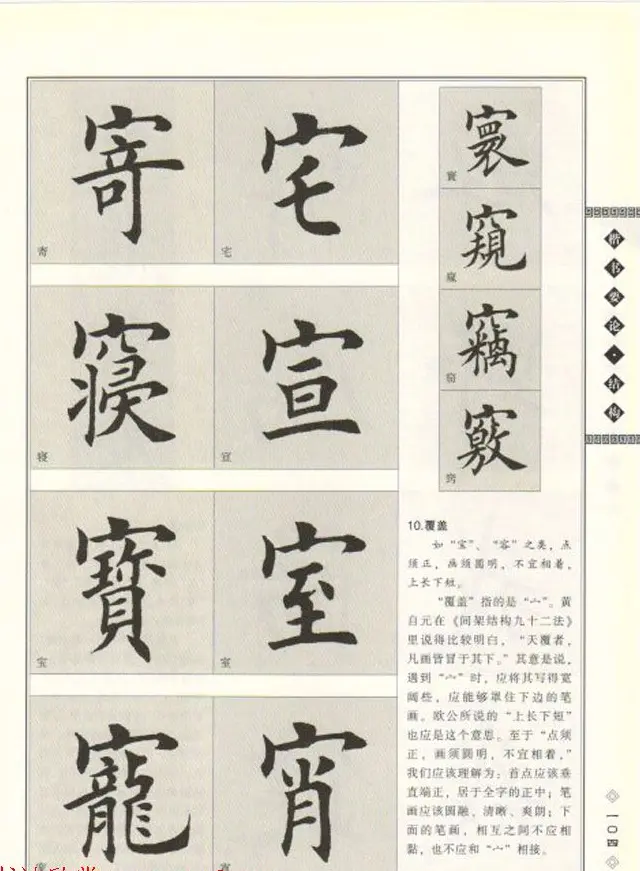 寄 宅
寄 宅
寝 宣
寝 宣
寶 室
宝 室
寵 宵
寰
窥
窃
窍
楷书要论·结构
10.覆盖
如“宝”、“容”之类,点
须正,画须圆明,不宜相着,
上长下短。
“覆盖”指的是“宀”。黄
自元在《间架结构九十二法》
里说得比较明白,“天覆者,
凡画皆冒于其下。”其意是说,
遇到“宀”时,应将其写得宽
阔些,应能够罩住下边的笔
画。欧公所说的“上长下短”
也应是这个意思。至于“点须
正,画须圆明,不宜相着,”
我们应该理解为:首点应该垂
直端正,居于全字的正中;笔
画应该圆融、清晰、爽朗;下
面的笔画,相互之间不应相
黏,也不应和“宀”相接。
一〇四